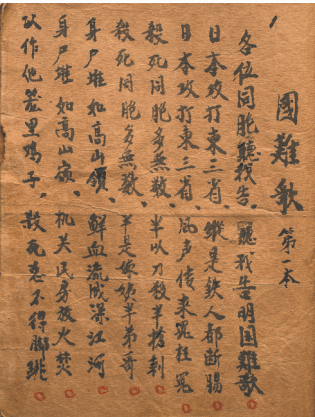 國難歌 第一本
各位同胞聽我告、聽我告明国難歌
日本攻打東三省、縱是鉄人都断腸
日本攻打東三省、風声传来冤枉冤
殺死同胞多無数、半以刀殺半槍刺
殺死同胞多無数、半是 半弟哥
身尸堆如高山嶺、鮮血流成深江河
身尸堆如高山嶺、机关民房被火焚
以作他 里鸡子、殺死 不得腳跳